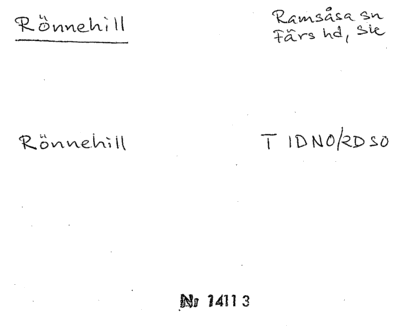 Rönnehill
Ramsåsa sn
Färs hd, Ske
Rönnehill
T 1DNO/2DSO
Nr 14113